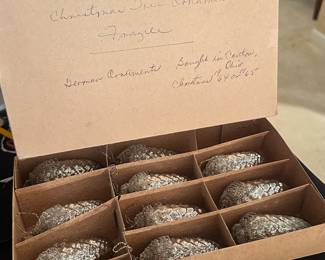 Christmas Tree Ornaments
Fragile
German Ornaments Bought in Canton,
Ohio
Christmas 64 or 65